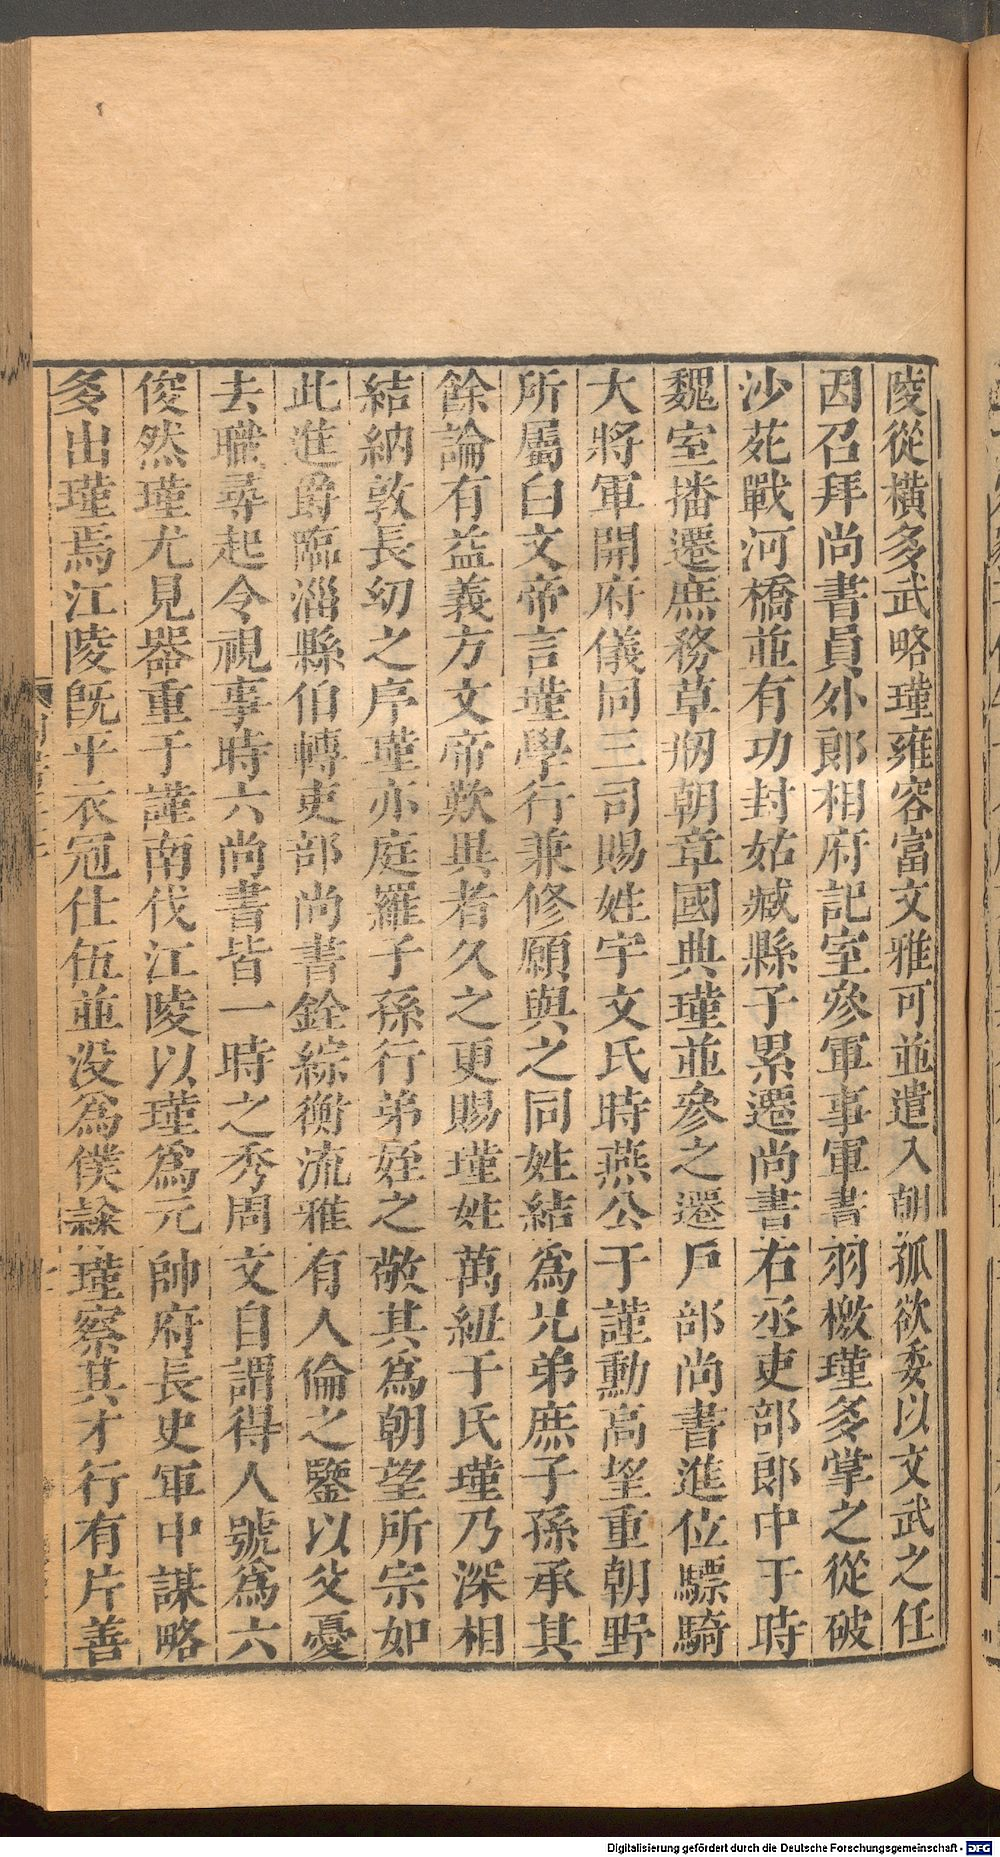 陵從橫多武略瑾雍容富文雅可並遣入朝孤欲委以文武之任
因召拜尚書員外郎相府記室參軍事軍書羽檄瑾多掌之從破
沙苑戰河橋並有功封姑臧縣子累遷尚書右丞吏部郎中于時
魏室播遷庶務草刱朝章國典瑾並參之遷戸部尚書進位驃騎
大將軍開府儀同三司賜姓宇文氏時燕公于謹勳高望重朝野
所屬白文帝言瑾學行兼修願與之同姓結爲兄弟庶子孫承其
餘論有益義方文帝歎異者久之更賜瑾姓萬紐于氏瑾乃深相
結納敦長幼之序瑾亦庭羅子孫行弟姪之敬其爲朝望所宗如
此進爵臨淄縣伯轉吏部尚書銓綜衡流雅有人倫之鑒以父憂
去職尋起令視事時六尚書皆一時之秀周文自謂得人號爲六
俊然瑾尤見器重于謹南伐江陵以瑾爲元帥府長史軍中謀略
多出瑾焉江陵旣平衣冠仕伍並没爲僕隸瑾察其才行有片善
Digitalisierung gefördert durch die Deutsche Forschungsgemeinschaft - DFG